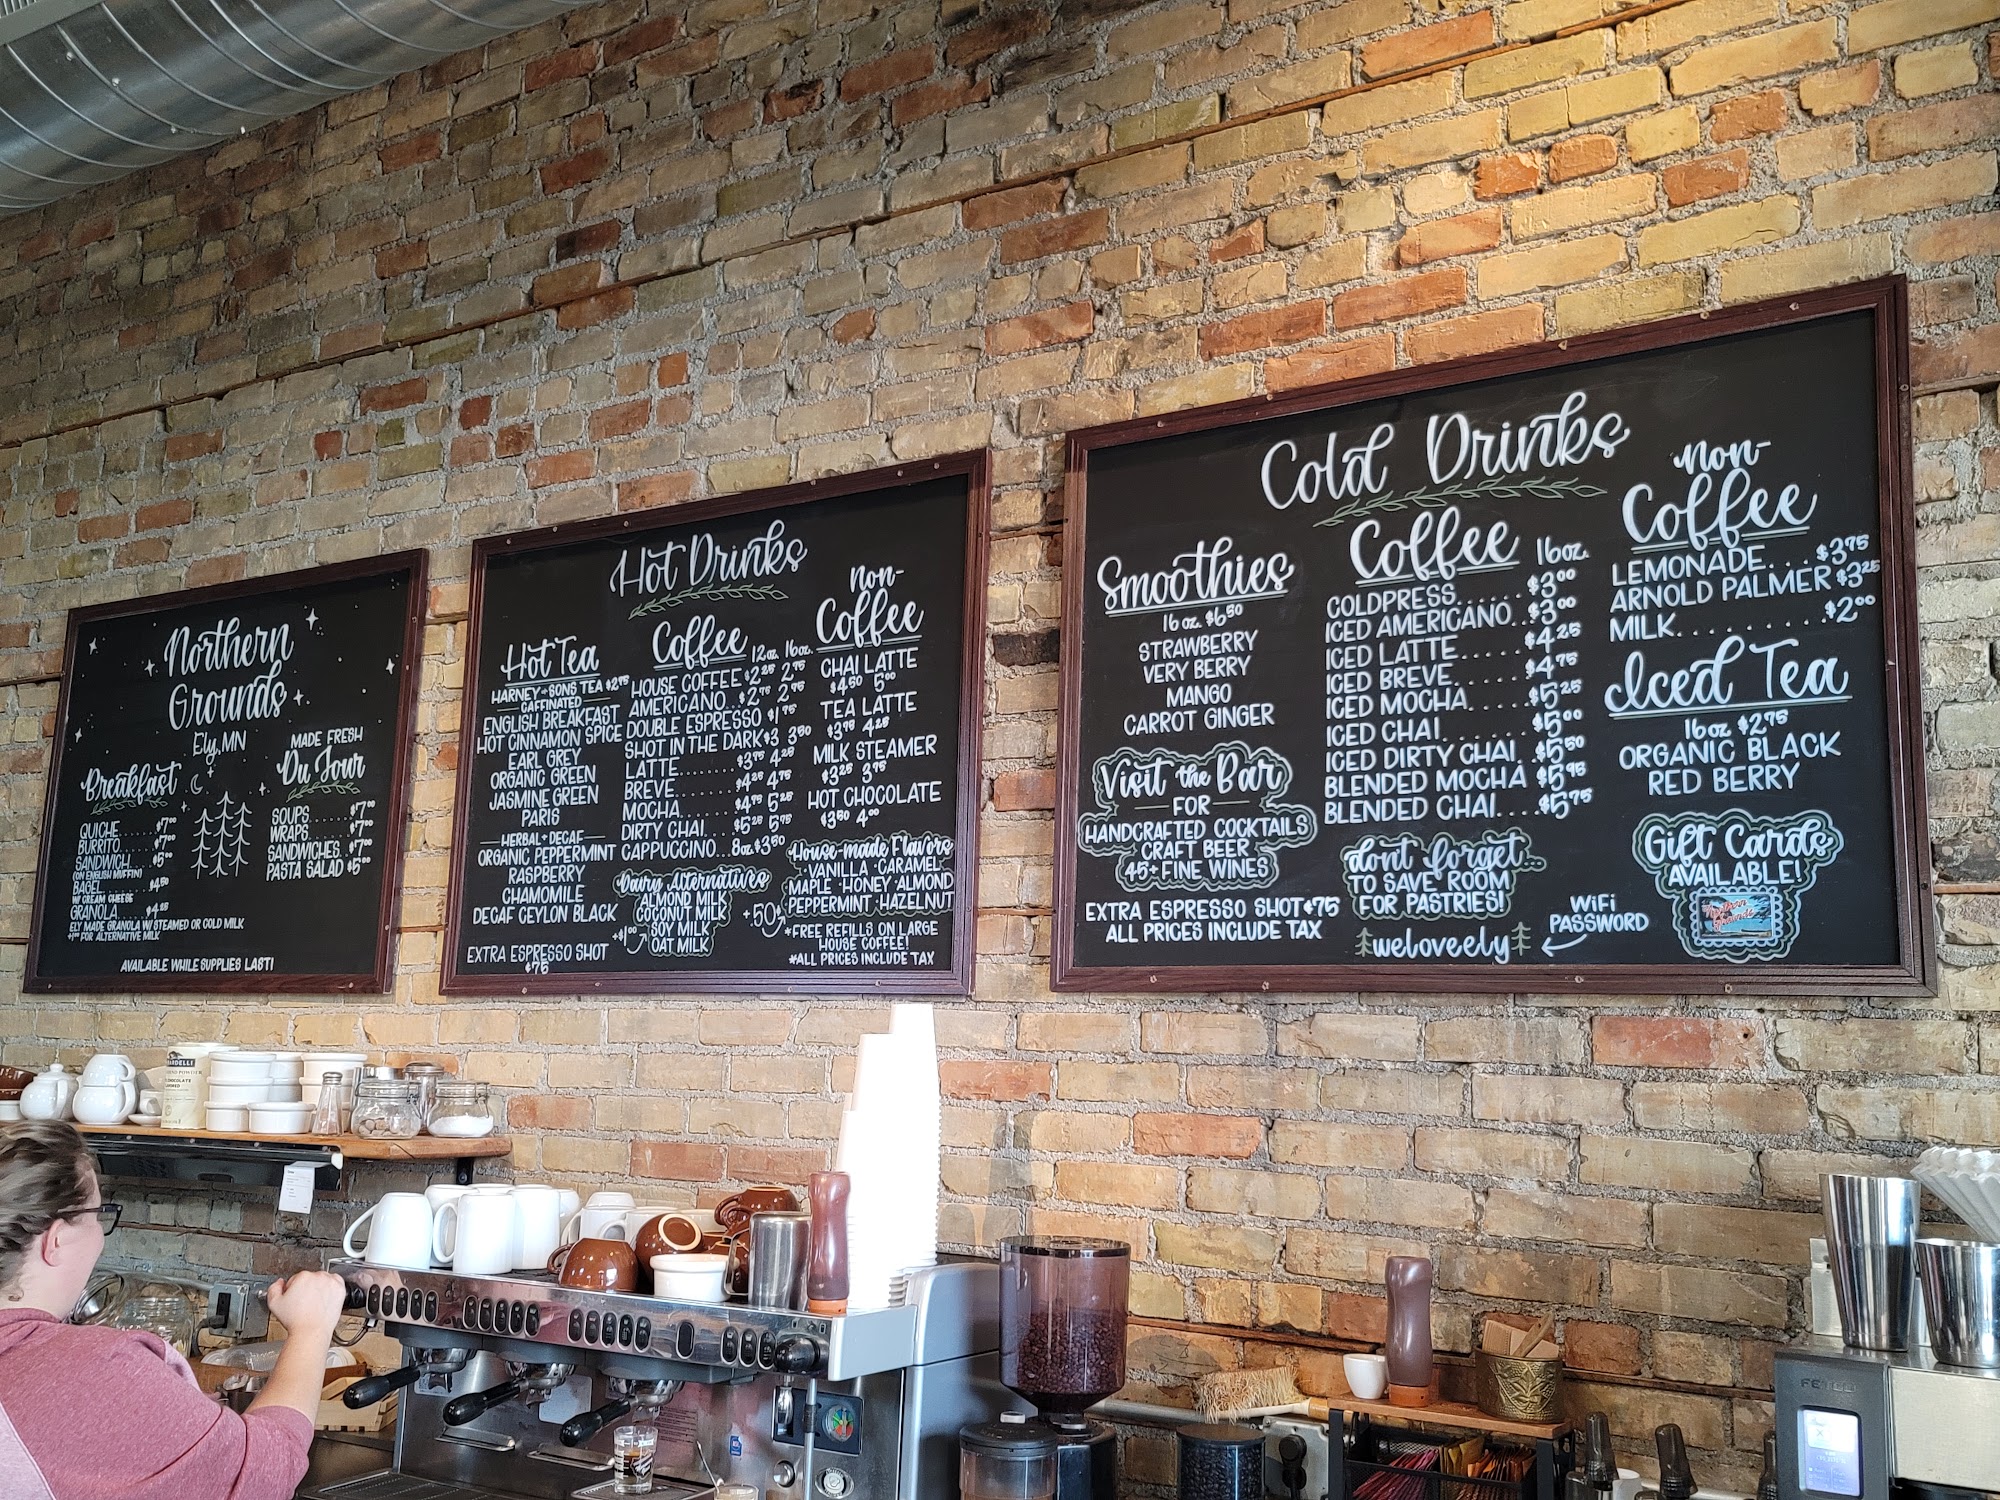 Northern
Grounds
Ely, MN
Breakfast
QUICHE......$7.00
BURRITO......$7.00
SANDWICH....$5.00
(ON ENGLISH MUFFIN)
BAGEL.......$4.50
W/ CREAM CHEESE
GRANOLA......$4.25
ELY MADE GRANOLA W/ STEAMED OR COLD MILK
+$1.00 FOR ALTERNATIVE MILK
MADE FRESH
Du Jour
SOUPS.......$7.00
WRAPS.......$7.00
SANDWICHES..$7.00
PASTA SALAD $5.00
AVAILABLE WHILE SUPPLIES LAST!
Hot Drinks
Hot Tea
HARNEY + SONS TEA $2.75
CAFFINATED
ENGLISH BREAKFAST
HOT CINNAMON SPICE
EARL GREY
ORGANIC GREEN
JASMINE GREEN
PARIS
HERBAL + DECAF
ORGANIC PEPPERMINT
RASPBERRY
CHAMOMILE
DECAF CEYLON BLACK
EXTRA ESPRESSO SHOT
$.75
Coffee 12oz. 16oz.
HOUSE COFFEE $2.25 2.75
AMERICANO...$2.75 2.95
DOUBLE ESPRESSO $1.75
SHOT IN THE DARK $3 3.50
LATTE........$3.75 4.25
BREVE........$4.25 4.75
MOCHA.......$4.75 5.25
DIRTY CHAI....$5.25 5.75
CAPPUCCINO...8oz. $3.50
Dairy Alternatives
ALMOND MILK
COCONUT MILK
+$1.00 SOY MILK
OAT MILK
Non-
Coffee
CHAI LATTE
$4.50 5.00
TEA LATTE
$3.75 4.25
MILK STEAMER
$3.25 3.75
HOT CHOCOLATE
$3.50 4.00
House-made Flavors
·VANILLA·CARAMEL·
MAPLE·HONEY·ALMOND
PEPPERMINT·HAZELNUT
+.50
*FREE REFILLS ON LARGE
HOUSE COFFEE!
*ALL PRICES INCLUDE TAX
Cold Drinks
Smoothies
16 oz. $6.50
STRAWBERRY
VERY BERRY
MANGO
CARROT GINGER
Visit the Bar
FOR
HANDCRAFTED COCKTAILS
CRAFT BEER
45+ FINE WINES
EXTRA ESPRESSO SHOT $.75
ALL PRICES INCLUDE TAX
Coffee 16oz.
COLDPRESS......$3.00
ICED AMERICANO..$3.00
ICED LATTE......$4.25
ICED BREVE......$4.75
ICED MOCHA.....$5.25
ICED CHAI.......$5.00
ICED DIRTY CHAI..$5.50
BLENDED MOCHA $5.95
BLENDED CHAI....$5.75
dont forget...
TO SAVE ROOM
FOR PASTRIES!
weloveely
WiFi
PASSWORD
Non-
Coffee
LEMONADE....$3.75
ARNOLD PALMER $3.25
MILK.........$2.00
Iced Tea
16oz $2.75
ORGANIC BLACK
RED BERRY
Gift Cards
AVAILABLE!
Northern
Grounds
FETCO